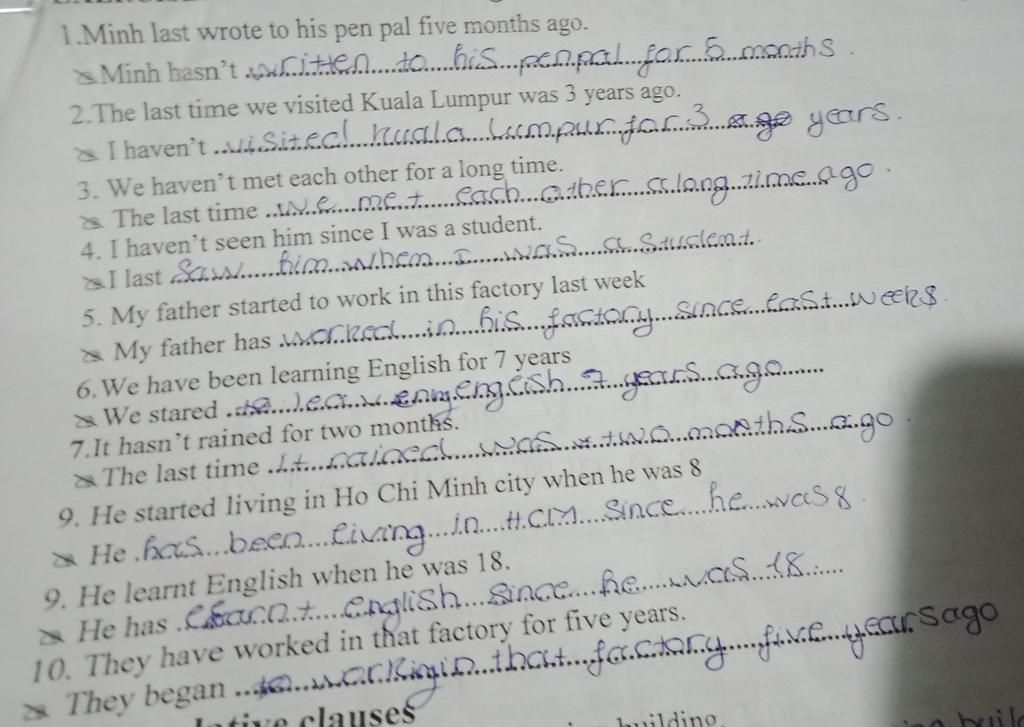 1.Minh last wrote to his pen pal five months ago.
Minh hasn't written to his penpal for 5 months.
2.The last time we visited Kuala Lumpur was 3 years ago.
I haven't visited kuala Lumpur for 3 years.
3. We haven't met each other for a long time.
The last time we met each other a long time ago.
4. I haven't seen him since I was a student.
I last saw him when I was a student.
5. My father started to work in this factory last week
My father has worked in his factory since last weeks.
6.We have been learning English for 7 years
We stared english 7 years ago
7.It hasn't rained for two months.
The last time It rained was two months ago.
9. He started living in Ho Chi Minh city when he was 8
He has been living in HCM since he was 8.
9. He learnt English when he was 18.
He has learnt english since he was 18
10. They have worked in that factory for five years.
They began working in that factory five years ago
clauses
building